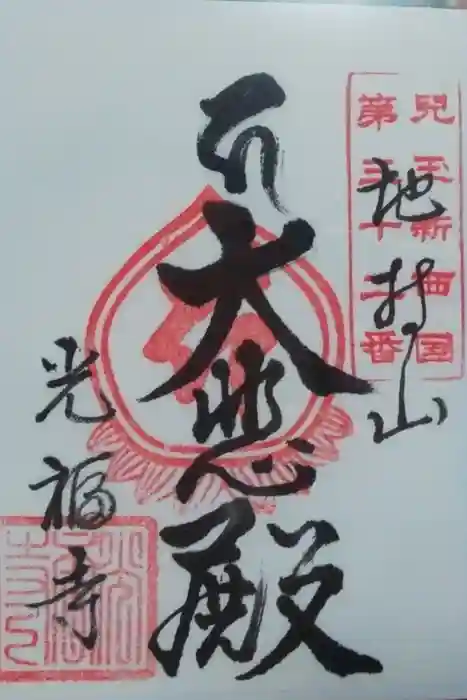 兒玉新西国
第三十二番
地持山
大悲殿
光福寺